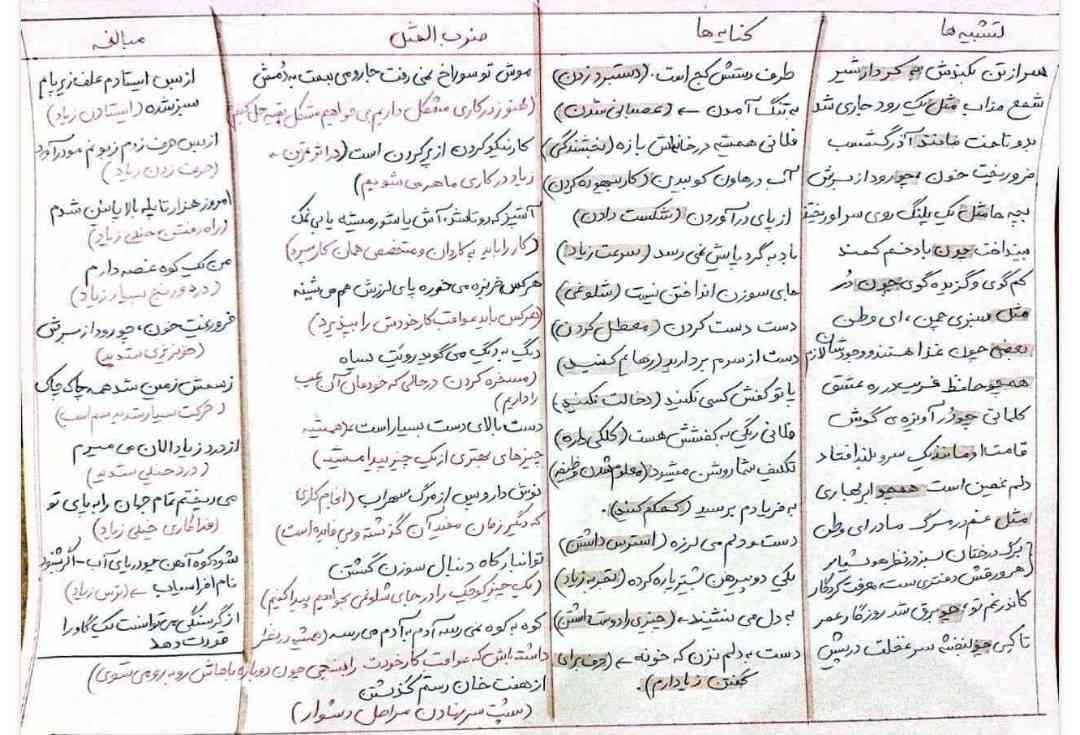 تشبیه ها
سر از تن بکندش به کردار شیر
شمع مذاب مثل یک رود جاری شد
برو تاخت مانند آذرگشسب
فرو ریخت خون چو رود از برش
بچه ها مثل یک پلنگ روی سر او ریختند
بینداخت چون باد خم کمند
کم گوی و گزیده گوی چون دُر
مثل سبزی چمن، ای وطن
بعضی چون غذا هستند وجودشان لازم
همچو حافظ غریب در ره عشق
کلماتی چو دُر آویزه ی گوش
قامت او مانند یک سرو بلند افتاد
دلم غمین است همچو ابر بهاری
مثل غم در سرگ مادر ای وطن
برگ درختان سبز در نظر هوشیار
هر ورقش دفتری ست معرفت کردگار
کاندر غم تو، چو برق شد روزگار عمر
تا کی چو بنفشه سر غفلت در پیش
کنایه ها
طرف دستش کج است. (دستبرد زدن)
به تنگ آمدن ← (عصبانی شدن)
فلانی همیشه در خانه اش بازه (بخشندگی)
آب در هاون کوبیدن (کار بیهوده کردن)
از پای درآوردن (شکست دادن)
باد به گرد پایش نمی رسد (سرعت زیاد)
جای سوزن انداختن نیست (شلوغی)
دست دست کردن (معطل کردن)
دست از سرم بردارید (رهایم کنید)
پا تو کفش کسی نکنید (دخالت نکنید)
فلانی ریگی به کفشش هست (کلکی داره)
تکلیف شما روشن میشود (معلوم شدن وظیفه)
به فریادم برسید (کمکم کنید).
دست و دلم می لرزه (استرس داشتن)
یکی دو پیرهن بیشتر پاره کرده (تجربه زیاد)
به دل می نشیند ← (چیزی را دوست داشتن)
دست به دلم نزن که خونه ← (حرف برای
گفتن زیاد دارم).
ضرب المثل
موش تو سوراخ نمی رفت جارو می بست به دُمش
(هنوز در کاری مشکل داریم می خواهیم مشکل بقیه حل کنیم)
کار نیکو کردن از پر کردن است (در اثر تمرین
زیاد در کاری ماهر می شویم)
آشپز که دو تا شد، آش یا شور میشه یا بی نمک
(کار را باید به کاردان و متخصص همان کار سپرد)
هرکس خربزه می خوره پای لرزش هم می شینه
(هرکس باید عواقب کار خودش را بپذیرد)
دیگ به دیگ می گوید رویت سیاه
(مسخره کردن در حالی که خودمان آن عیب
را داریم)
دست بالای دست بسیار است ← (همیشه
چیزهای بهتری از یک چیز پیدا میشه)
نوش دارو پس از مرگ سهراب (انجام کاری
که دیگر زمان مفید آن گذشته و بی فایده است)
تو انبار کاه دنبال سوزن گشتن
(یک چیز کوچک را در جای شلوغی بخواهیم پیدا کنیم)
کوه به کوه نمی رسه آدم به آدم می رسه (همیشه در نظر
داشته باش که عواقب کار خودت را بسنجی چون دوباره باهاش روبه رو می شوی)
از هفت خان رستم گذشتن
(پشت سر نهادن مراحل دشوار)
مبالغه
از بس ایستادم علف زیر پام
سبز شده (ایستادن زیاد)
از بس حرف زدم زبونم مو درآورد
(حرف زدن زیاد)
امروز هزار تا پله بالا پایین شدم
(راه رفتن خیلی زیاد)
من یک کوه غصه دارم
(درد و رنج بسیار زیاد)
فرو ریخت خون، چو رود از برش
(خونریزی شدید)
ز سمش زمین شد همه چاک چاک
(حرکت بسیار شدید سم اسب)
از درد زیاد الان می میرم
(درد خیلی شدید)
می ریختم تمام جهان را به پای تو
(فداکاری خیلی زیاد)
شود کوه آهن چو دریای آب - اگر بشنود
نام افراسیاب ← (ترس زیاد)
از گرسنگی می توانست یک گاو را
قورت دهد